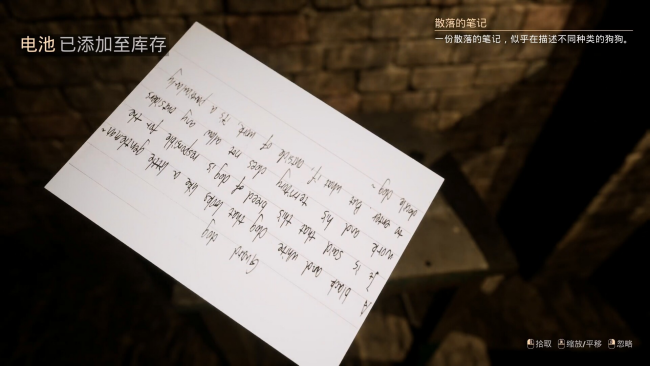 电池 已添加至库存
散落的笔记
一份散落的笔记，似乎在描述不同种类的狗狗。
Guard dog
A black and white dog that looks like a little gentleman~
It is said that this breed of dog is responsible for the
work and his territory does not allow any
to enter. But what if, outside of work, it's a particularly
docile dog~
拾取 缩放/平移 忽略